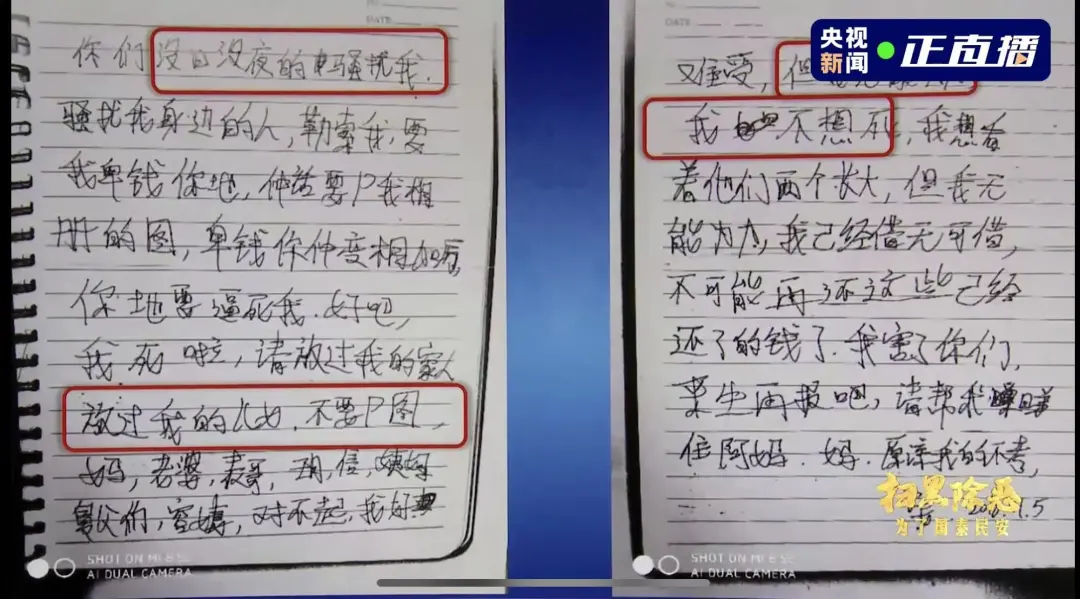 你们没日没夜的电骚扰我.
骚扰我身边的人,勒索我,要
我畀钱你地,仲话要P我相
册的图,畀钱你仲变相
你地要逼死我.好吧,
我死啦,请放过我的家人
放过我的儿女.不要P图,
妈,老婆,表哥,
舅父们,对不起,我好
DATE
又难受,但
我不想死,我想看
着他们两个长大,但我无
能为力,我已经借无可借,
不可能再还这些已经
还了的钱了.我害了你们,
来生再报吧,请帮我
住阿妈.妈.原谅我的不孝,
1.5
央视新闻
正直播
扫黑除恶
为了国泰民安
SHOT ON MI 8 SE
AI DUAL CAMERA
SHOT ON MI 8 SE
AI DUAL CAMERA